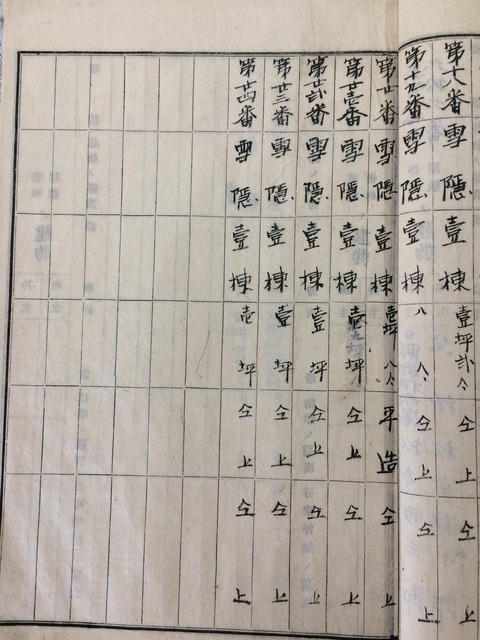 第十八番 雪隠 壹棟 壹坪弐〻 仝上 仝上
第十九番 雪隠 壹棟 八〻 仝上 仝上
第廿番 雪隠 壹棟 壹坪八〻 平造 仝上
第廿壱番 雪隠 壹棟 坪 仝上 仝上
第廿弐番 雪隠 壹棟 壹坪 仝上 仝上
第廿三番 雪隠 壹棟 壹坪 仝上 仝上
第廿四番 雪隠 壹棟 壱坪 仝上 仝上